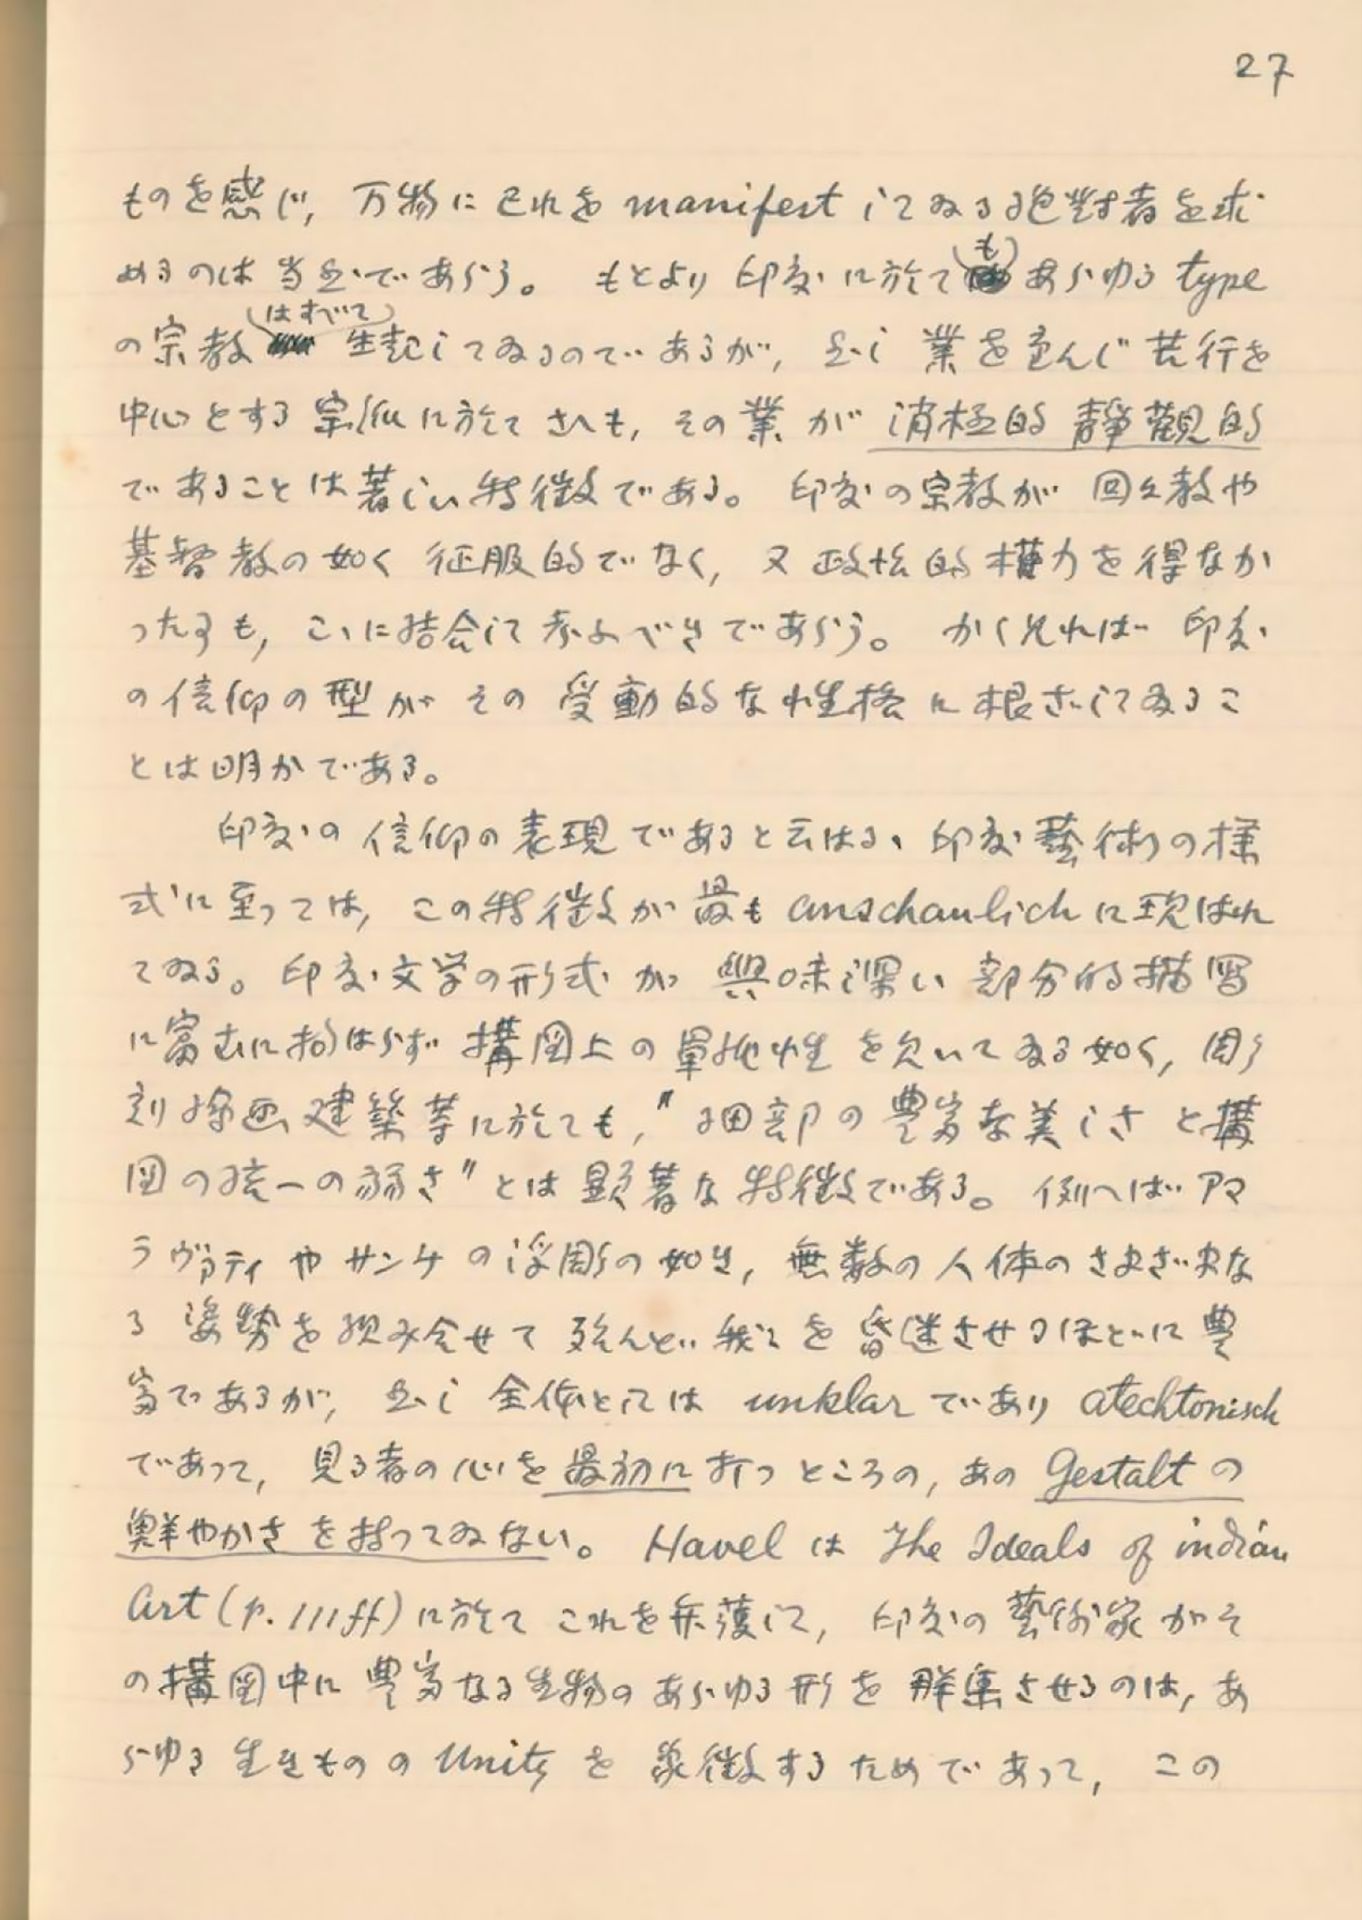 27
ものを感じ, 万物に己れを manifest してゐる絶対者を求
めるのは当然であらう。 もとより 印度に於ても あらゆる type
の宗教はすべて 生起してゐるのであるが, 然し 業を重んじ 苦行を
中心とする 宗派に於てさへも, その業が 消極的 静観的
であることは著しい特徴である。 印度の宗教が 回々教や
基督教の如く 征服的でなく, 又 政治的権力を得なか
った事も, こゝに結合して考ふべきであらう。 かく見れば 印度
の信仰の型が その 受動的な性格に根ざしてゐるこ
とは明かである。
印度の 信仰の表現であると云はるゝ 印度藝術の様
式に至っては, この特徴が最も anschaulich に現はれ
てゐる。 印度文学の形式が 興味深い 部分的描写
に富むに拘はらず 構図上の単純性を欠いてゐる如く, 彫
刻絵画建築等に於ても, "細部の豊富な美しさと構
図の統一の弱さ" とは顕著な特徴である。 例へば アマ
ラヴァティや サンチの浮彫の如き, 無数の人体のさまざまな
る 姿勢を組み合せて 殆んど 我々を昏迷させるほどに豊
富であるが, 然し 全体としては unklar であり atechtonisch
であって, 見る者の心を最初に打つところの, あの Gestalt の
鮮やかさを持ってゐない。 Havel は The Ideals of indian
Art (p. 111ff) に於て これを弁護して, 印度の藝術家がそ
の構図中に 豊富なる生物のあらゆる形を 群集させるのは, あ
らゆる 生きものの Unity を 象徴するためであって, この